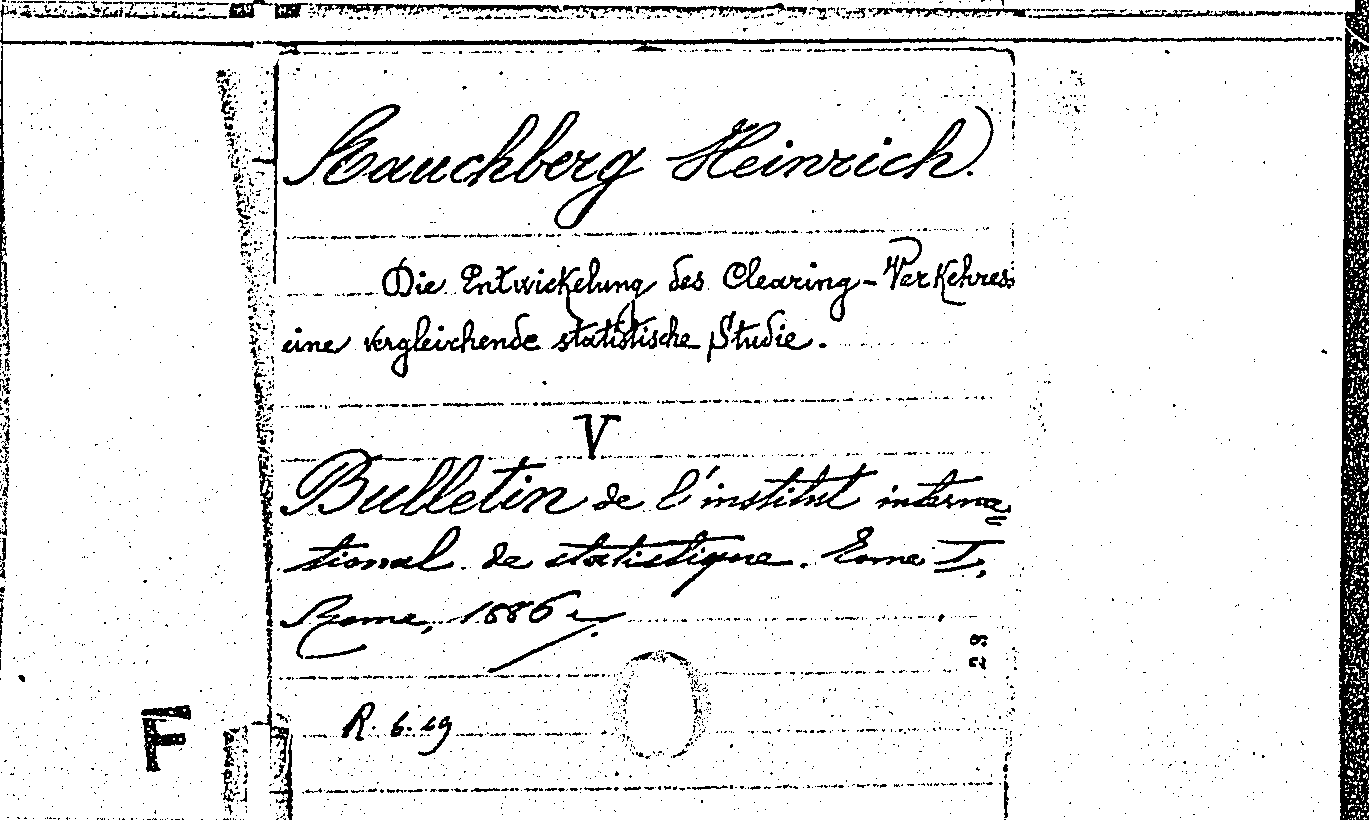 Rauchberg Heinrich.
Die Entwickelung des Clearing-Verkehres
eine vergleichende statistische Studie.
V
Bulletin de l'institut interna=
tional de statistique. Tome I,
Rome, 1886
29
R. 6. 19
F